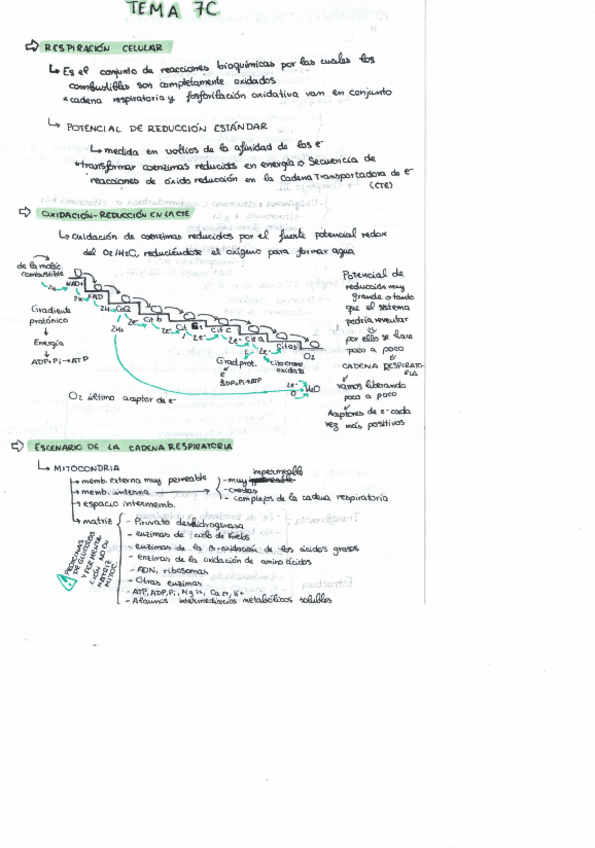 TEMA 7C
⇨ RESPIRACIÓN CELULAR
↳ Es el conjunto de reacciones bioquímicas por las cuales los
combustibles son completamente oxidados
* cadena respiratoria y fosforilación oxidativa van en conjunto
↳ POTENCIAL DE REDUCCIÓN ESTÁNDAR
↳ medida en voltios de la afinidad de los e-
* transformar coenzimas reducidas en energía → Secuencia de
reacciones de óxido reducción en la Cadena Transportadora de e-
(CTE)
⇨ OXIDACIÓN-REDUCCIÓN EN LA CTE
↳ Oxidación de coenzimas reducidos por el fuerte potencial redox
del O2/H2O, reduciéndose el oxígeno para formar agua
de la molec.
combustible
NAD+
FAD
CoQ
Cit b
Cit c1
cit c
Cit a
Cit a3
O2
2H
2H
2H+
2e-
2e-
2e-
2e-
2e-
Gradiente
protónico
↓
Energía
↓
ADP+Pi→ATP
Grad prot.
E
ADP+Pi→ATP
citocromo
oxidasa
2e-
H2O
O2 último aceptor de e-
Potencial de
reducción muy
grande → tando
que el sistema
podría reventar
por ello se hace
poco a poco
CADENA RESPIRATORIA
vamos liberando
poco a poco
Aceptores de e- cada
vez más positivos
⇨ ESCENARIO DE LA CADENA RESPIRATORIA
↳ MITOCONDRIA
→ memb. externa muy permeable
→ memb. interna
- muy impermeable
- crestas
- complejos de la cadena respiratoria
→ espacio intermemb.
→ matriz
- Piruvato deshidrogenasa
- enzimas de ciclo de Krebs
- enzimas de la β-oxidación de los ácidos grasos
- enzimas de la oxidación de amino ácidos
- ADN, ribosomas
- Otras enzimas
- ATP, ADP, Pi, Mg2+, Ca2+, K+
- Algunos intermediarios metabólicos solubles
DE GLUCÓLISIS
Y FERMENTA
CIÓN NO EN
MATRIZ
MITOC.